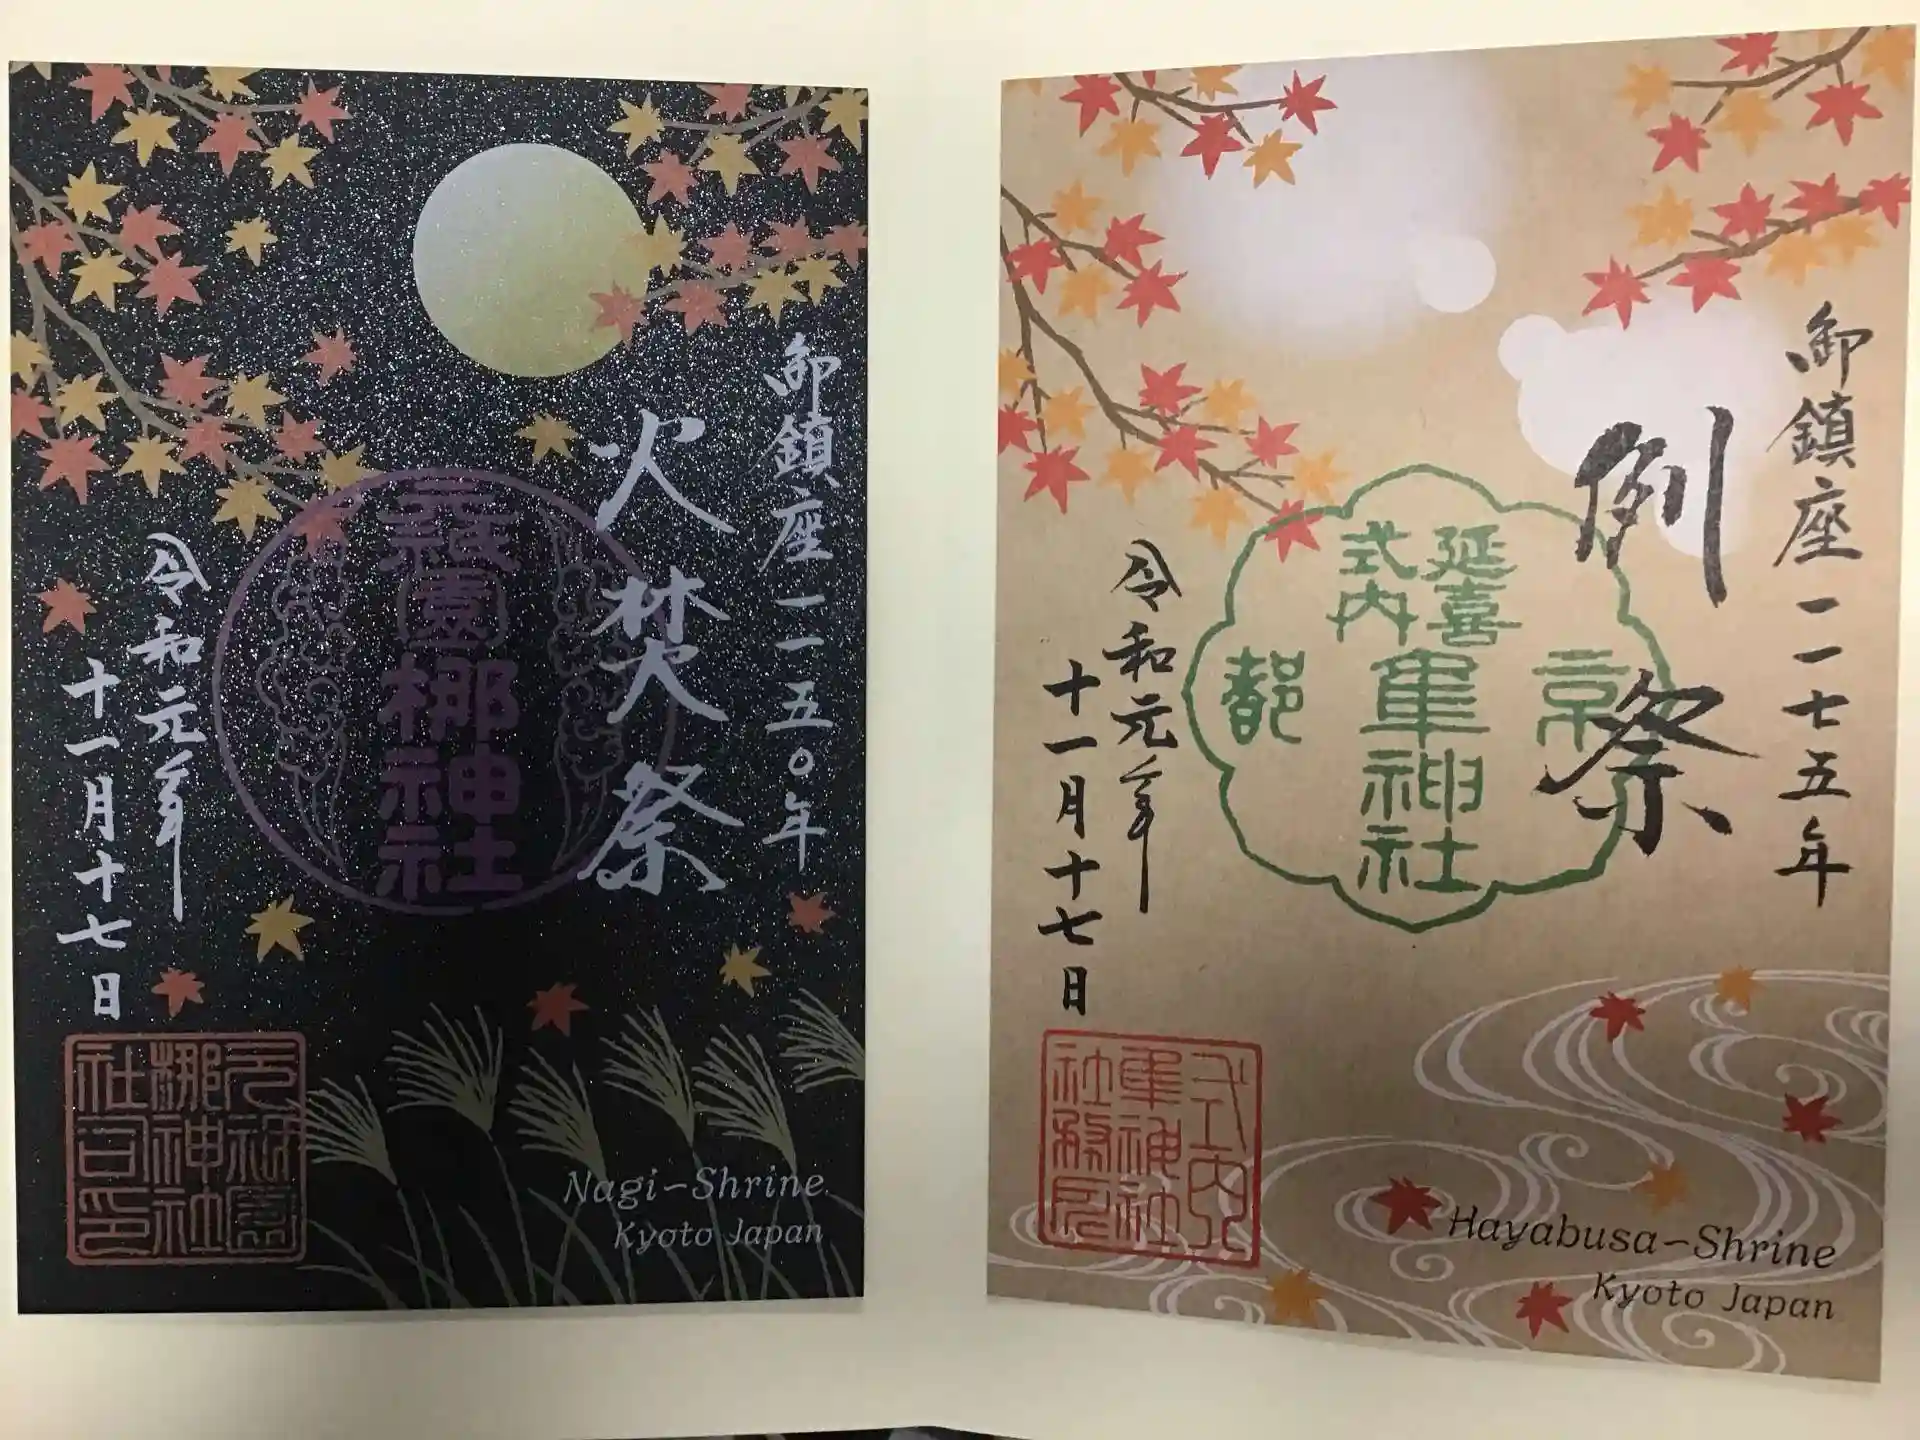 御鎮座一一五〇年
火焚祭
元祇園梛神社
令和元年
十一月十七日
元祇園
梛神社
社司印
Nagi-Shrine
Kyoto Japan
御鎮座一一七五年
例祭
延喜
式内
隼神社
京
都
令和元年
十一月十七日
式内
隼神社
Hayabusa-Shrine
Kyoto Japan